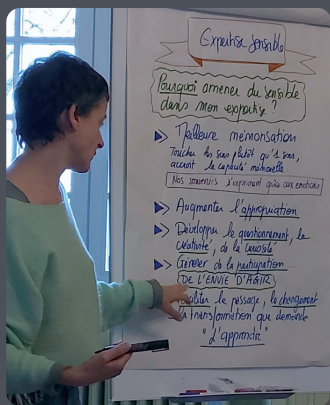 Expertise sensible
Pourquoi amener du sensible
dans mon expertise ?
Meilleure mémorisation
Toucher les sens plutôt qu'1 sens,
accroît la capacité mémorielle
Nos souvenirs s'impriment grâce aux émotions
Augmenter l'appropriation
Développer le questionnement, la
créativité, de la curiosité
Générer de la participation
DE L'ENVIE D'AGIR
le passage, le changement
la transformation que demande
"d'apprendre"